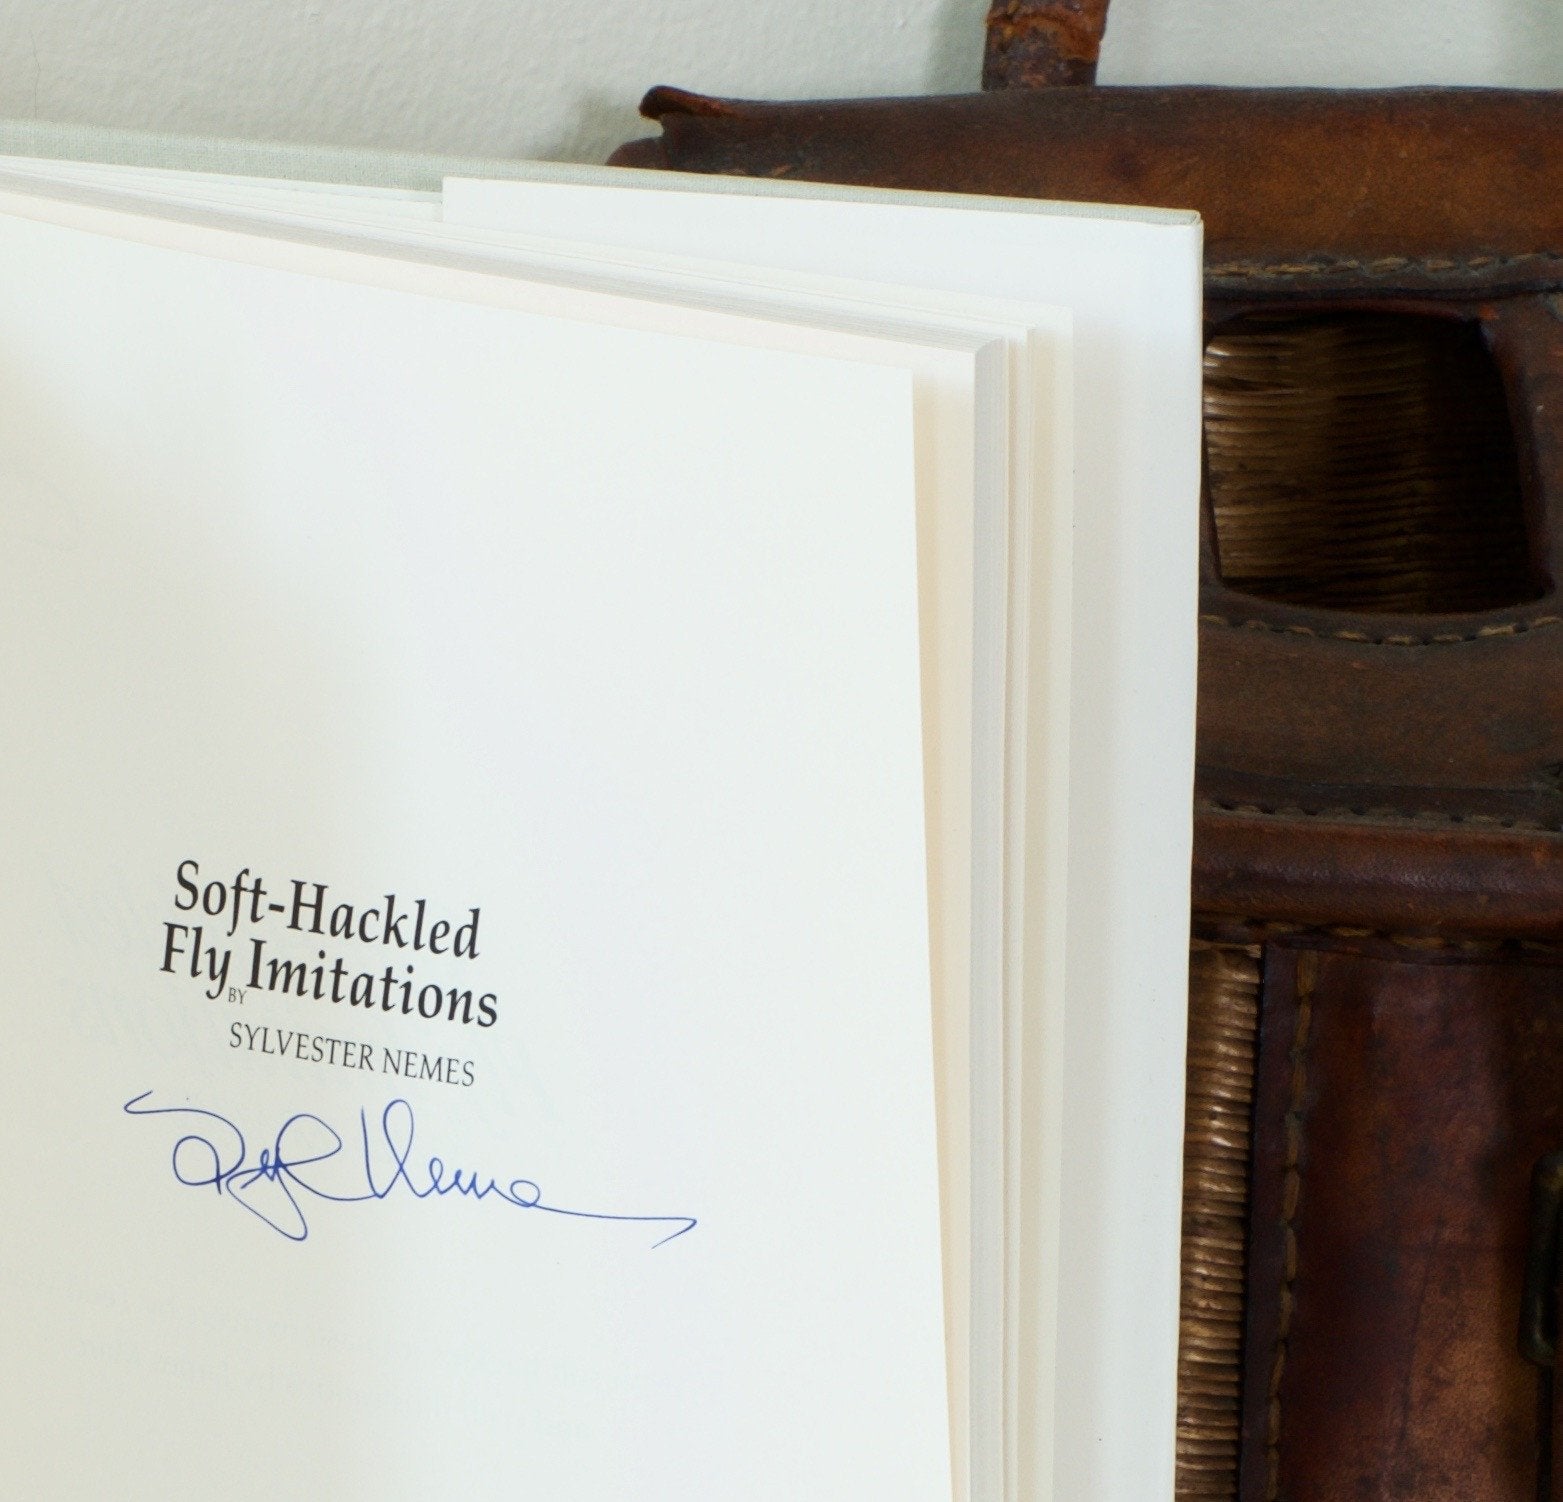 Soft-Hackled
Fly Imitations
BY
SYLVESTER NEMES
Syl Nemes